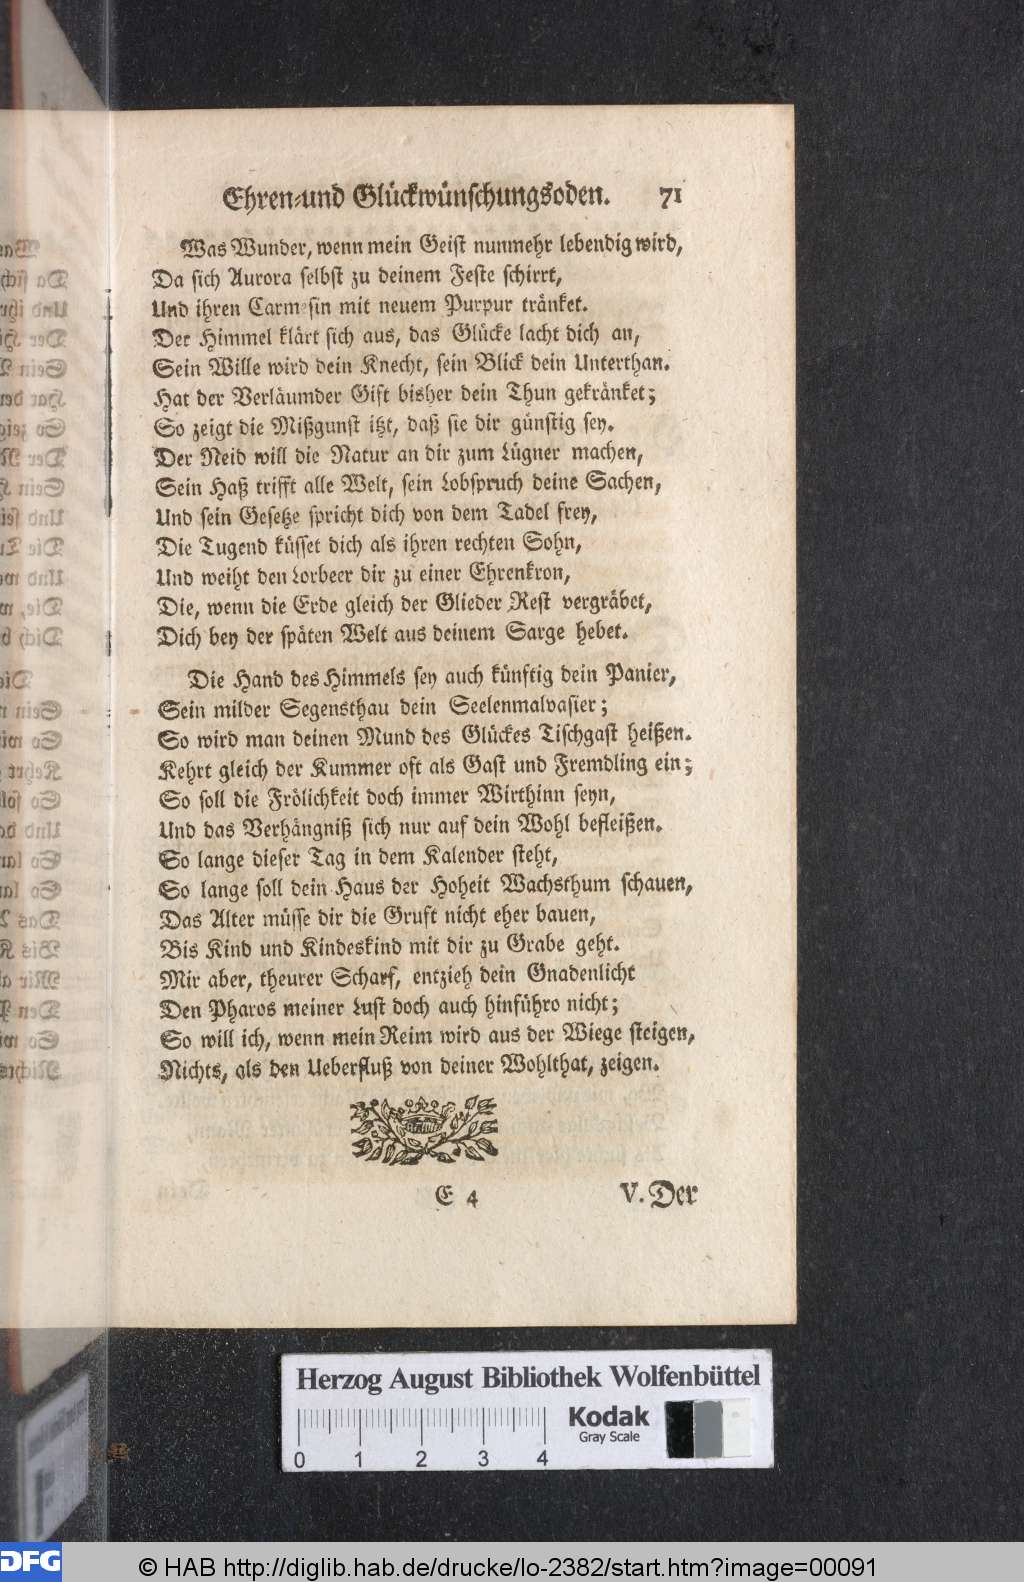 Ehren-und Glückwünschungsoden. 71
Was Wunder, wenn mein Geist nunmehr lebendig wird,
Da sich Aurora selbst zu deinem Feste schirrt,
Und ihren Carmesin mit neuem Purpur tränket.
Der Himmel klärt sich aus, das Glücke lacht dich an,
Sein Wille wird dein Knecht, sein Blick dein Unterthan.
Hat der Verläumder Gift bisher dein Thun gekränket;
So zeigt die Mißgunst itzt, daß sie dir günstig sey.
Der Neid will die Natur an dir zum Lügner machen,
Sein Haß trifft alle Welt, sein Lobspruch deine Sachen,
Und sein Gesetze spricht dich von dem Tadel frey,
Die Tugend küsset dich als ihren rechten Sohn,
Und weiht den Lorbeer dir zu einer Ehrenkron,
Die, wenn die Erde gleich der Glieder Rest vergräbet,
Dich bey der späten Welt aus deinem Sarge hebet.
Die Hand des Himmels sey auch künftig dein Panier,
Sein milder Segensthau dein Seelenmalvasier;
So wird man deinen Mund des Glückes Tischgast heißen.
Kehrt gleich der Kummer oft als Gast und Fremdling ein;
So soll die Frölichkeit doch immer Wirthinn seyn,
Und das Verhängniß sich nur auf dein Wohl befleißen.
So lange dieser Tag in dem Kalender steht,
So lange soll dein Haus der Hoheit Wachsthum schauen,
Das Alter müsse dir die Gruft nicht eher bauen,
Bis Kind und Kindeskind mit dir zu Grabe geht.
Mir aber, theurer Scharf, entzieh dein Gnadenlicht
Den Pharos meiner Lust doch auch hinführo nicht;
So will ich, wenn mein Reim wird aus der Wiege steigen,
Nichts, als den Ueberfluß von deiner Wohlthat, zeigen.
E 4 V. Der
Herzog August Bibliothek Wolfenbüttel
0 1 2 3 4
Kodak
Gray Scale
DFG
© HAB http://diglib.hab.de/drucke/lo-2382/start.htm?image=00091